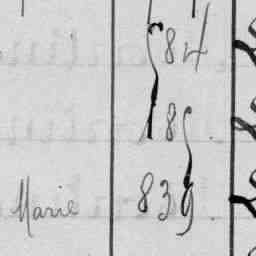 584
185.
Marie 839.